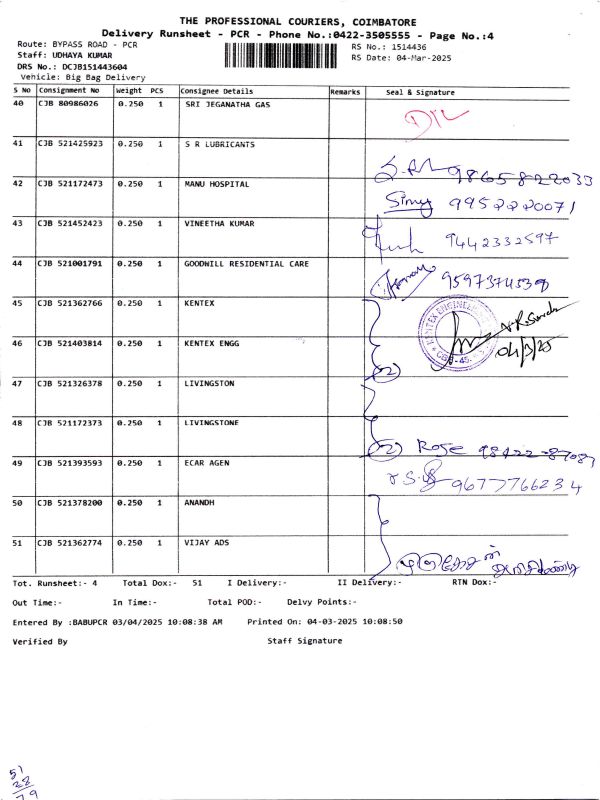 THE PROFESSIONAL COURIERS, COIMBATORE
Delivery Runsheet - PCR - Phone No.:0422-3505555 - Page No.:4
Route: BYPASS ROAD - PCR
RS No.: 1514436
Staff: UDHAYA KUMAR
RS Date: 04-Mar-2025
DRS No.: DCJB151443604
Vehicle: Big Bag Delivery
S No Consignment No Weight PCS Consignee Details Remarks Seal & Signature
40 CJB 80986026 0.250 1 SRI JEGANATHA GAS
41 CJB 521425923 0.250 1 S R LUBRICANTS
9865822033
42 CJB 521172473 0.250 1 MANU HOSPITAL
9952220071
43 CJB 521452423 0.250 1 VINEETHA KUMAR
9442332597
44 CJB 521001791 0.250 1 GOODWILL RESIDENTIAL CARE
45 CJB 521362766 0.250 1 KENTEX
46 CJB 521403814 0.250 1 KENTEX ENGG
04/3/25
(2)
47 CJB 521326378 0.250 1 LIVINGSTON
48 CJB 521172373 0.250 1 LIVINGSTONE
(2) Rose
49 CJB 521393593 0.250 1 ECAR AGEN
9677766234
50 CJB 521378200 0.250 1 ANANDH
51 CJB 521362774 0.250 1 VIJAY ADS
Tot. Runsheet:- 4 Total Dox:- 51 I Delivery:- II Delivery:- RTN Dox:-
Out Time:- In Time:- Total POD:- Delvy Points:-
Entered By :BABUPCR 03/04/2025 10:08:38 AM Printed On: 04-03-2025 10:08:50
Verified By Staff Signature
51
28
79